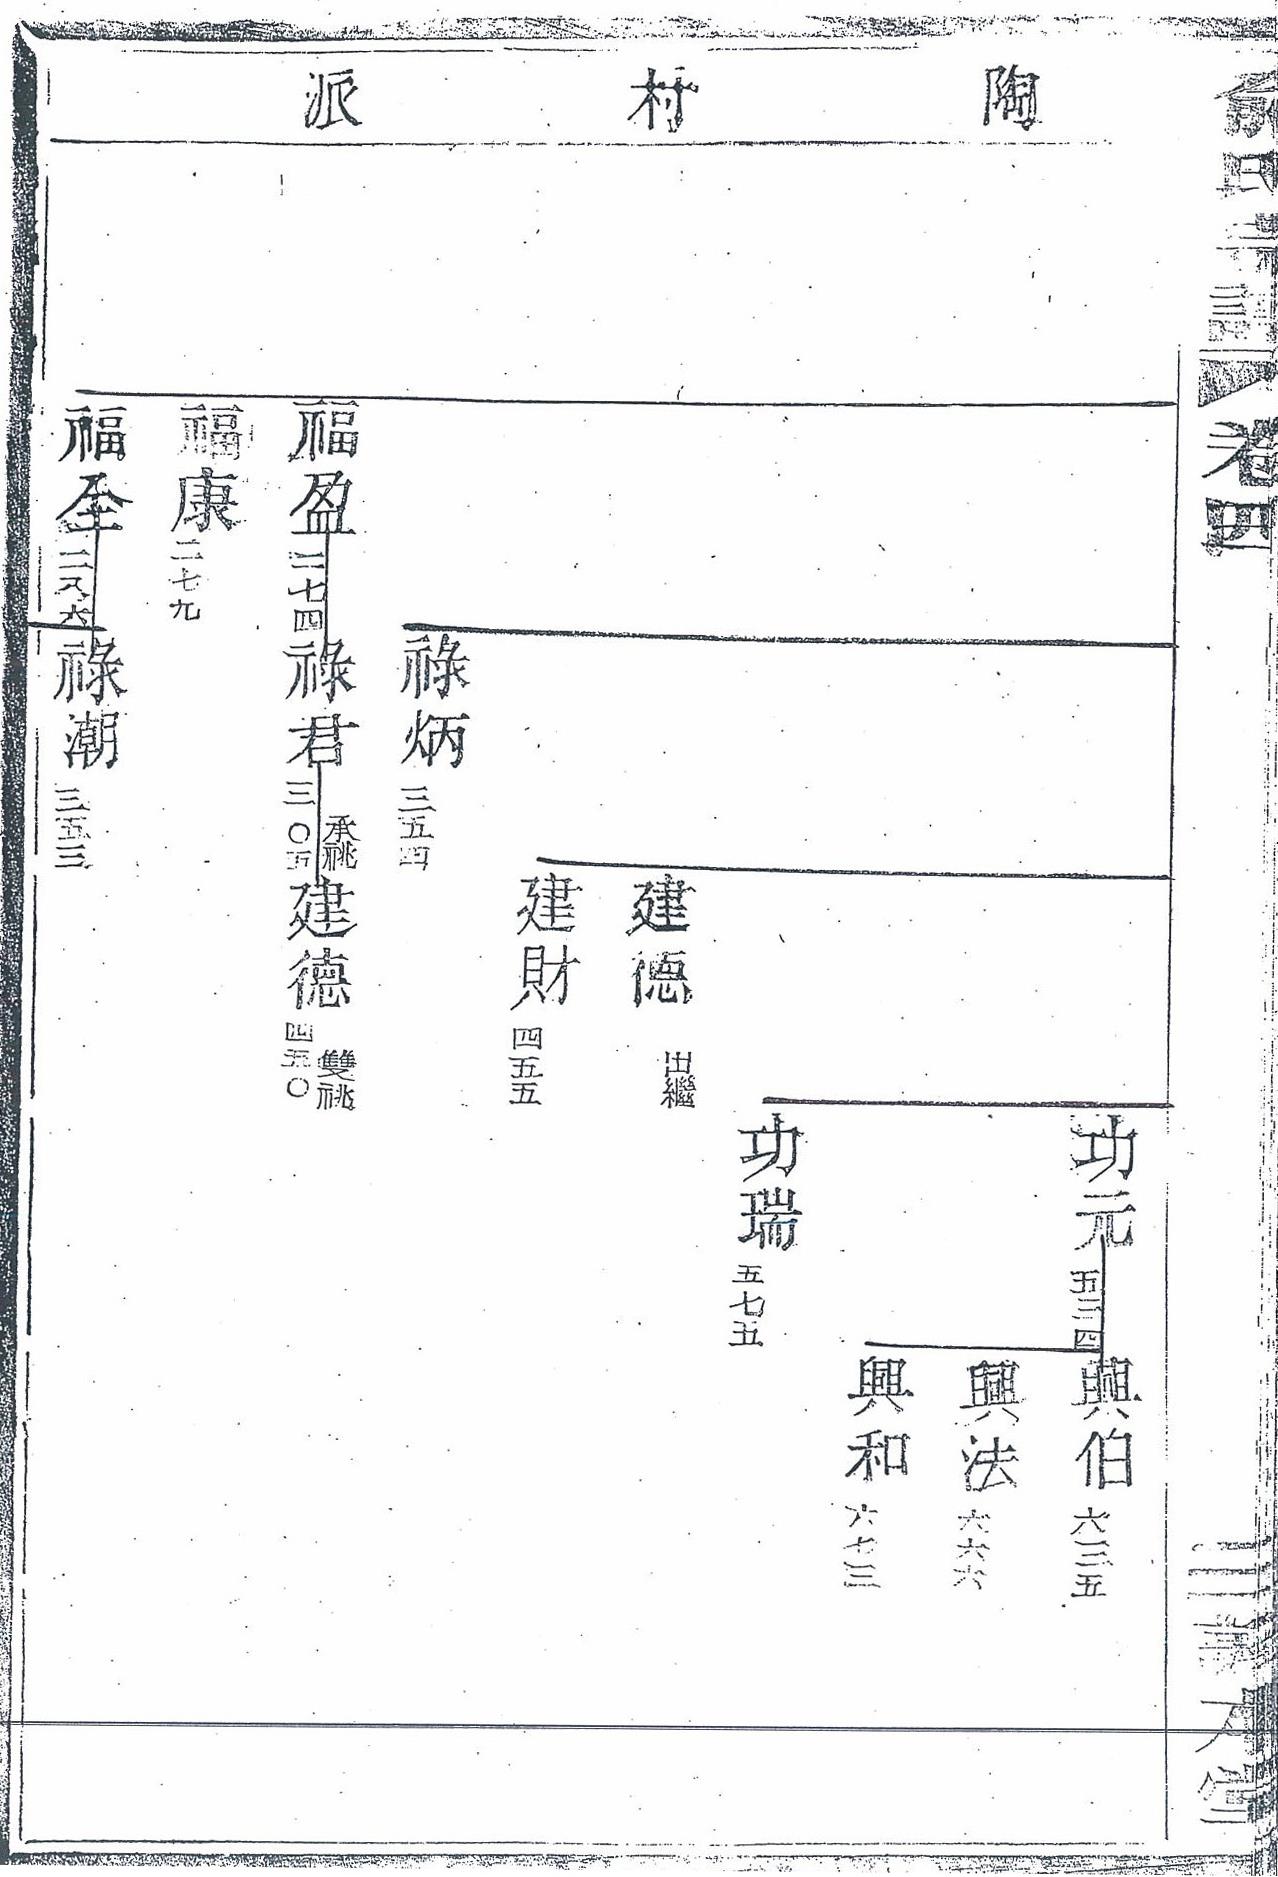 俞氏宗譜
卷四
三
陶村派
功元 五三四
興伯 六三五
興法 六六六
興和 六七三
功瑞 五七五
建德 出繼
建財 四五五
祿炳 三五四
福盈 二七四
祿君 三〇五 承祧
建德 四五〇 雙祧
福康 二七九
福全 二八六
祿潮 三五三